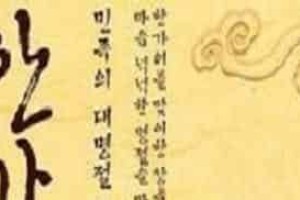 한가위를 맞이하
마음 넉넉한 명절을
민족의 대명절
한가